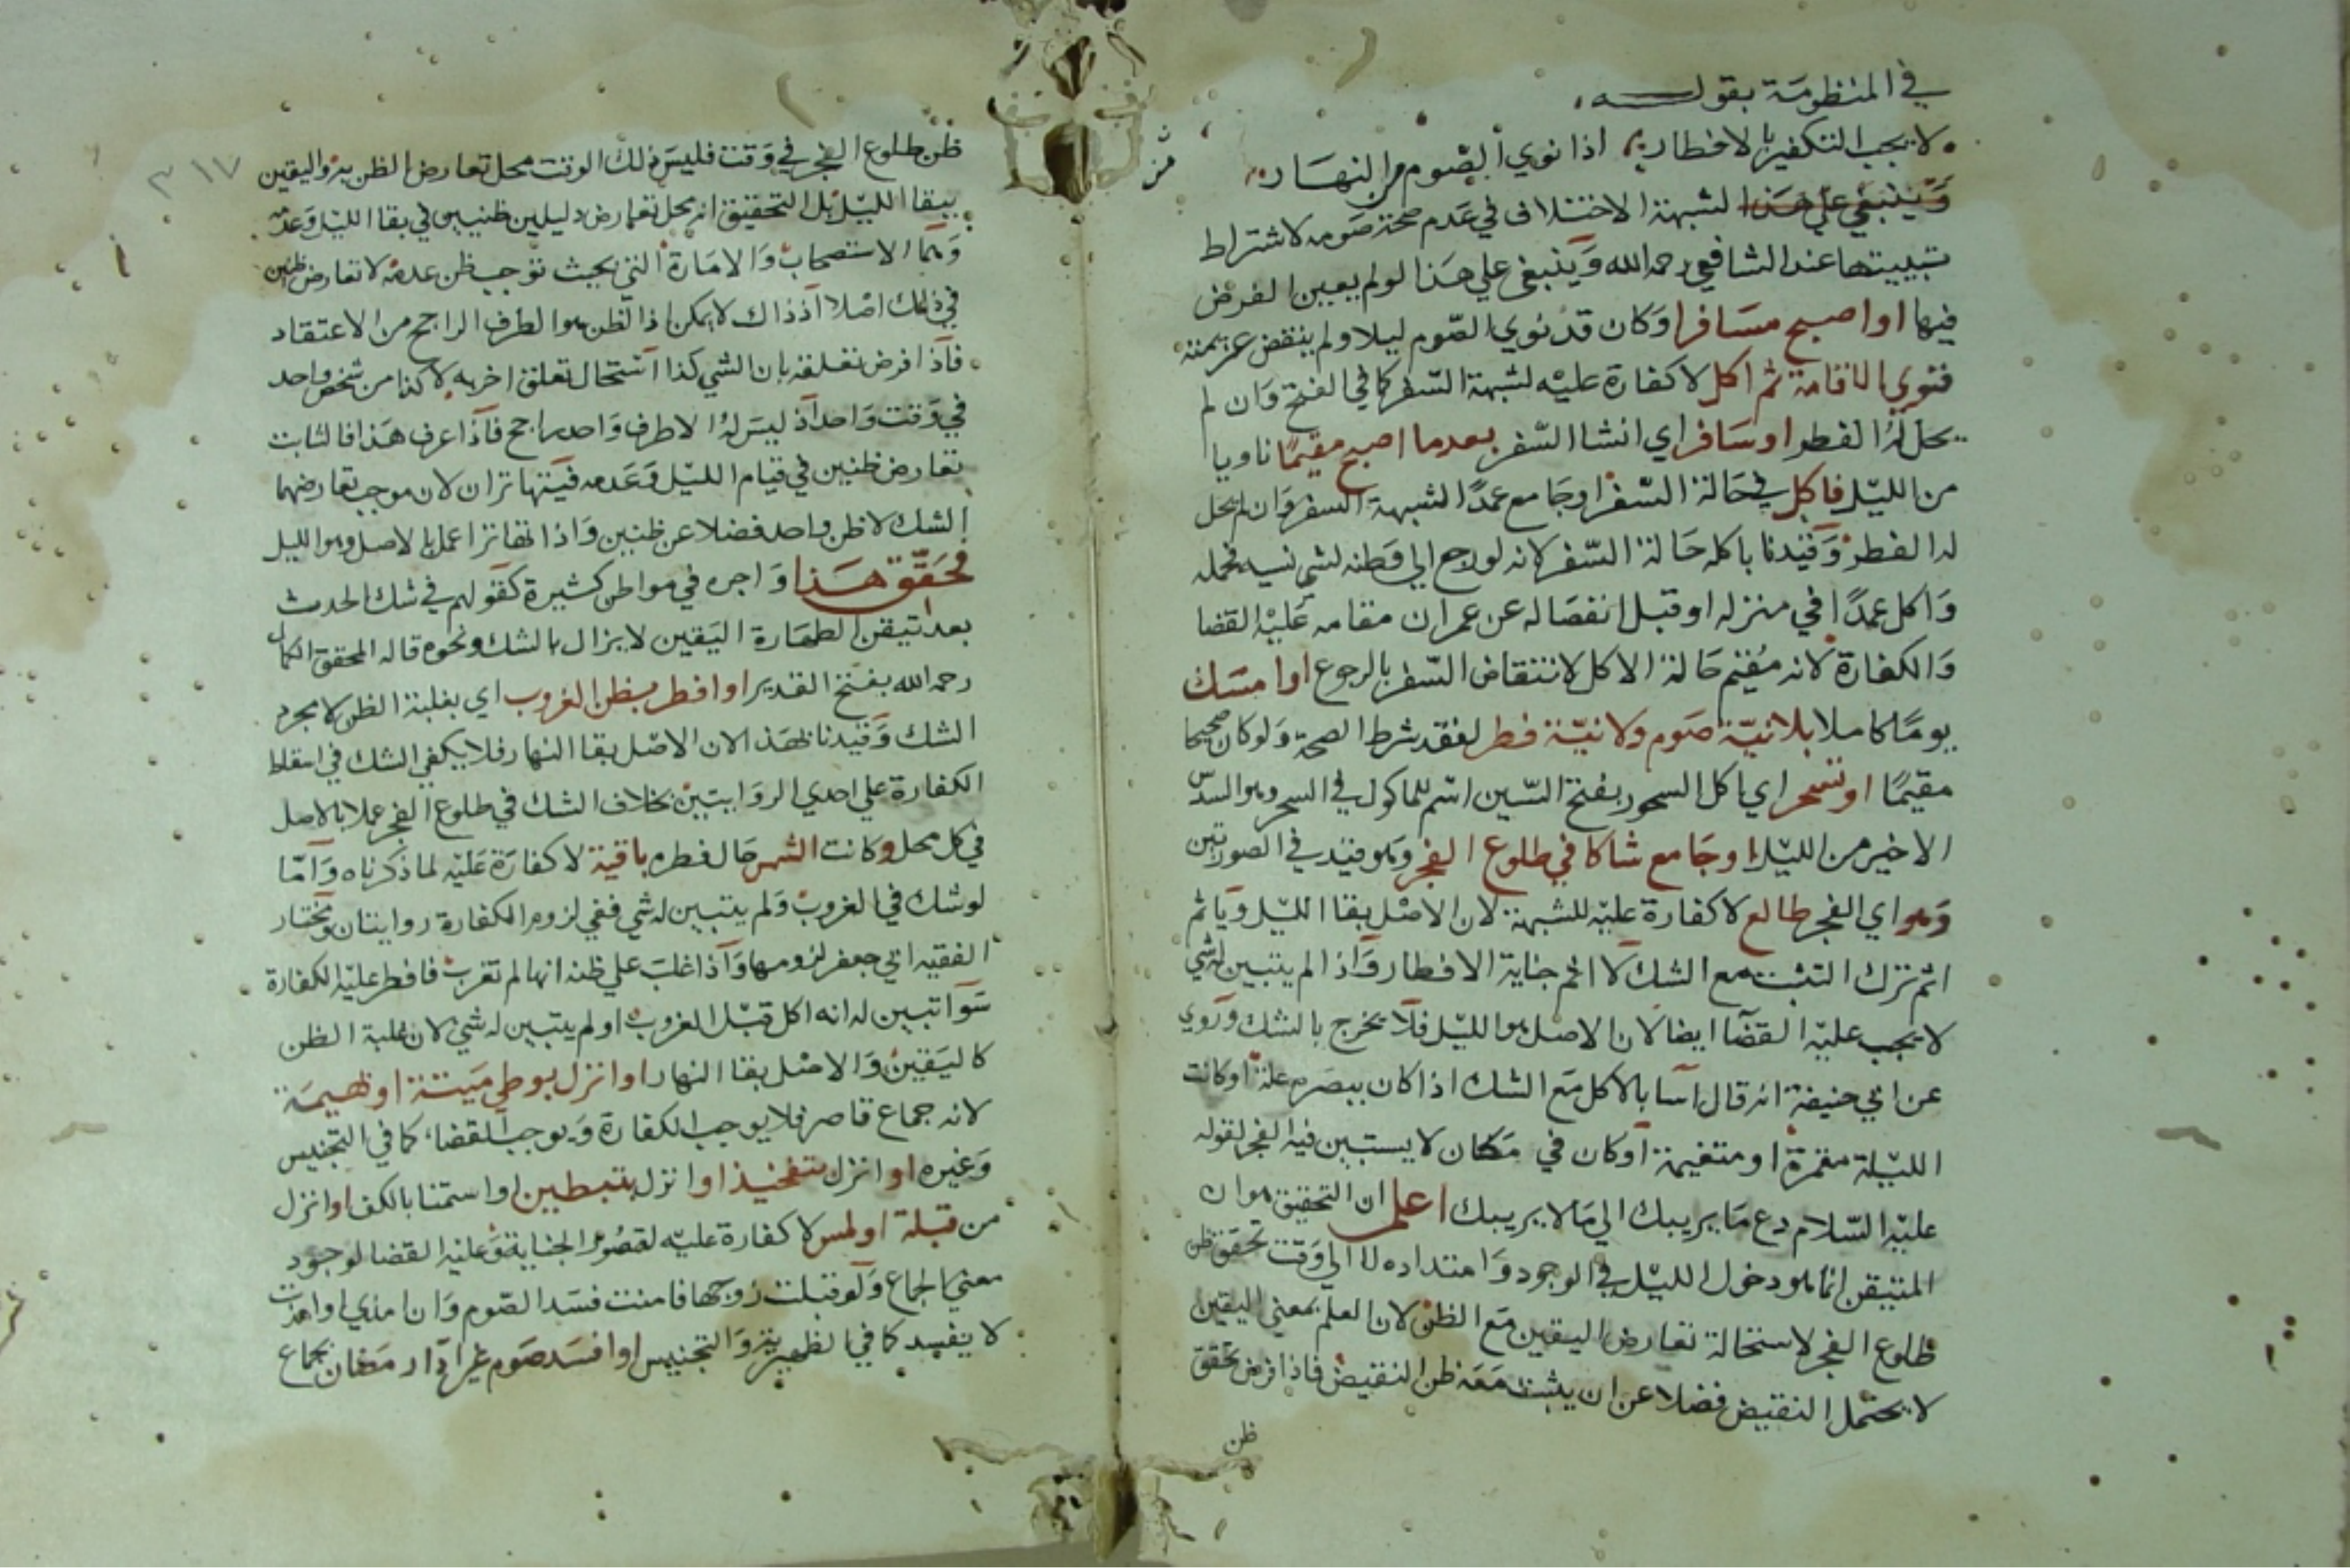 في المنظومة بقوله
لا يجب التكفير بالافطار اذا نوي الصوم من النهار
وينبغي علي هذا لشبهة الاختلاف في عدم صحة صومه لاشتراط
تبييتها عند الشافعي رحمه الله وينبغي علي هذا لو لم يعين الفرض
فيها او اصبح مسافرا وكان قد نوي الصوم ليلا ولم ينقض عزيمته
فنوي الاقامة ثم اكل لا كفارة عليه لشبهة السفر كما في الفتح وان لم
يحل له الفطر او سافر اي انشا السفر بعدما اصبح مقيما ناويا
من الليل فاكل في حالة السفر او جامع عمدا لشبهة السفر وان لم يحل
له الفطر وقيدنا باكله حالة السفر لانه لو رجع الي وطنه لشي نسيه بمحله
واكل عمدا في منزله او قبل انفصاله عن عمران مقامه عليه القضا
والكفارة لانه مقيم حالة الاكل لانتقاض السفر بالرجوع او امسك
يوما كاملا بلا نية صوم ولا نية فطر لفقد شرط الصحة ولو كان صحيحا
مقيما او تسحر اي اكل السحور بفتح السين اسم للماكول في السحر وهو السدس
الاخير من الليل او جامع شاكا في طلوع الفجر وهو قيد في الصورتين
وهو اي الفجر طالع لا كفارة عليه للشبهة لان الاصل بقا الليل وياثم
اثم ترك التثبت مع الشك لا اثم جناية الافطار واذا لم يتبين له شي
لا يجب عليه القضآ ايضا لان الاصل هو الليل فلا يخرج بالشك وروي
عن ابي حنيفة انه قال اسآ بالاكل مع الشك اذا كان ببصره علة او كانت
الليلة مقمرة او متغيمة او كان في مكان لا يستبين فيه الفجر لقوله
عليه السلام دع ما يريبك الي ما لا يريبك اعلم ان التحقيق هو ان
المتيقن انما هو دخول الليل في الوجود وامتداده لا الي وقت تحقق ظن
طلوع الفجر لاستحالة تعارض اليقين مع الظن لان العلم بمعني اليقين
لا يحتمل النقيض فضلا عن ان يثبت معه ظن النقيض فاذا فرض تحقق
ظن
٣١٧
ظن طلوع الفجر في وقت فليس ذلك الوقت محل تعارض الظن به واليقين
ببقا الليل بل التحقيق انه محل تعارض دليلين ظنيين في بقا الليل وعدمه
وهما الاستصحاب والامارة التي بحيث توجب ظن عدمه لا تعارض ظنين
في ذلك اصلا اذ ذاك لا يمكن اذ الظن هو الطرف الراجح من الاعتقاد
فاذا فرض تعلقه بان الشي كذا استحال تعلق اخر به لا كذا من شخص واحد
في وقت واحد اذ ليس له الا طرف واحد راجح فاذا عرف هذا فالثابت
تعارض ظنيين في قيام الليل وعدمه فيتهاتران لان موجب تعارضهما
الشك لا ظن واحد فضلا عن ظنين واذا تهاترا عمل بالاصل وهو الليل
فحقق هذا واجره في مواطن كثيرة كقولهم في شك الحدث
بعد تيقن الطهارة اليقين لا يزال بالشك ونحوه قاله المحقق الكمال
رحمه الله بفتح القدير او افطر بظن الغروب اي بغلبة الظن لا بمجرد
الشك وقيدنا بهذا لان الاصل بقا النهار فلا يكفي الشك في اسقاط
الكفارة علي احدي الروايتين بخلاف الشك في طلوع الفجر عملا بالاصل
في كل محل وكانت الشمس حال فطره باقية لا كفارة عليه لما ذكرناه واما
لو شك في الغروب ولم يتبين له شي ففي لزوم الكفارة روايتان ومختار
الفقيه ابي جعفر لزومها واذا غلب علي ظنه انها لم تغرب فافطر عليه الكفارة
سوآ تبين له انه اكل قبل الغروب او لم يتبين له شي لان غلبة الظن
كاليقين والاصل بقا النهار او انزل بوطي ميتة او بهيمة
لانه جماع قاصر فلا يوجب الكفارة ويوجب القضا كما في التجنيس
وغيره او انزل بتفخيذ او انزل بتبطين او استمنا بالكف او انزل
من قبلة او لمس لا كفارة عليه لقصور الجناية وعليه القضا لوجود
معني الجماع ولو قبلت زوجها فامنت فسد الصوم وان امذي او امذت
لا يفسد كما في الظهيرية والتجنيس او افسد صوم غير ادآ رمضان بجماع